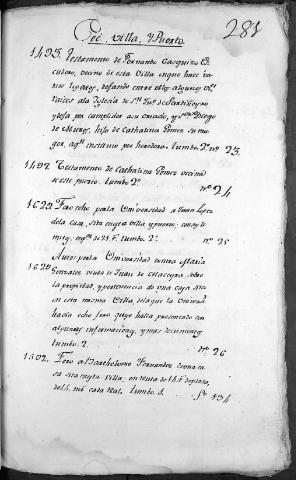 281
Cée, villa, y Puerto.
1495. Testamento de Fernando Gasquizo Es-
cudero, vecino de esta Villa en que hace va-
rios legados, dexando entre ellos algunos
raices ala Iglesia de
y dexa por cumplidor a su criado, y Diego
de Muros, hijo de Cathalina Perez su mu-
ger, a qn. instituio por heredero. tumbo 2º nº 23.
1497. Testamento de Cathalina Perez vecina
de este puerto. tumbo 2º nº 24
1622. Foro echo por la Universidad a Juan Lopez
de la casa, sita en esta villa y puerto; con sus li-
mites; en de 21. tumbo 2. nº 25
Auto por la Universidad contra Maria
1620. Gonzalez viuda de Juan de sobre
la propiedad, y pertenencia de una casa sita
en esta misma Villa, de la que la Universd.
havia echo foro, qe. se halla presentado con
algunas informaciones, y mas documentos
tumbo. 2. nº 26
1502. Foro a Bartholome Fernandez de una ca-
sa sita en esta villa, en renta de
de 14. mrs. cada Real. tumbo 1. fº 134